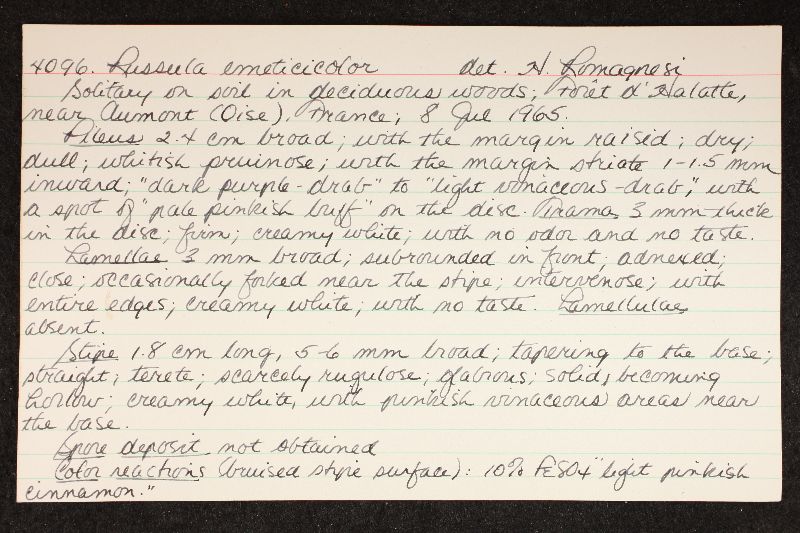 4096. Russula emeticicolor det. H. Romagnesi
Solitary on soil in deciduous woods, Forêt d'Halatte,
near Aumont (Oise), France, 8 Jul 1965.
Pileus 2.4 cm broad; with the margin raised; dry;
dull; whitish pruinose; with the margin striate 1-1.5 mm
inward; "dark purple-drab" to "light vinaceous-drab", with
a spot of "pale pinkish buff" on the disc. Trama 3 mm thick
in the disc; firm; creamy white; with no odor and no taste.
Lamellae 3 mm broad; subrounded in front; adnexed;
close; occasionally forked near the stipe; intervenose; with
entire edges; creamy white; with no taste. Lamellulae
absent.
Stipe 1.8 cm long, 5-6 mm broad; tapering to the base;
straight; terete; scarcely rugulose; glabrous; solid, becoming
hollow; creamy white, with pinkish vinaceous areas near
the base.
Spore deposit not obtained
Color reactions (bruised stipe surface): 10% FeSO4 "light pinkish
cinnamon."